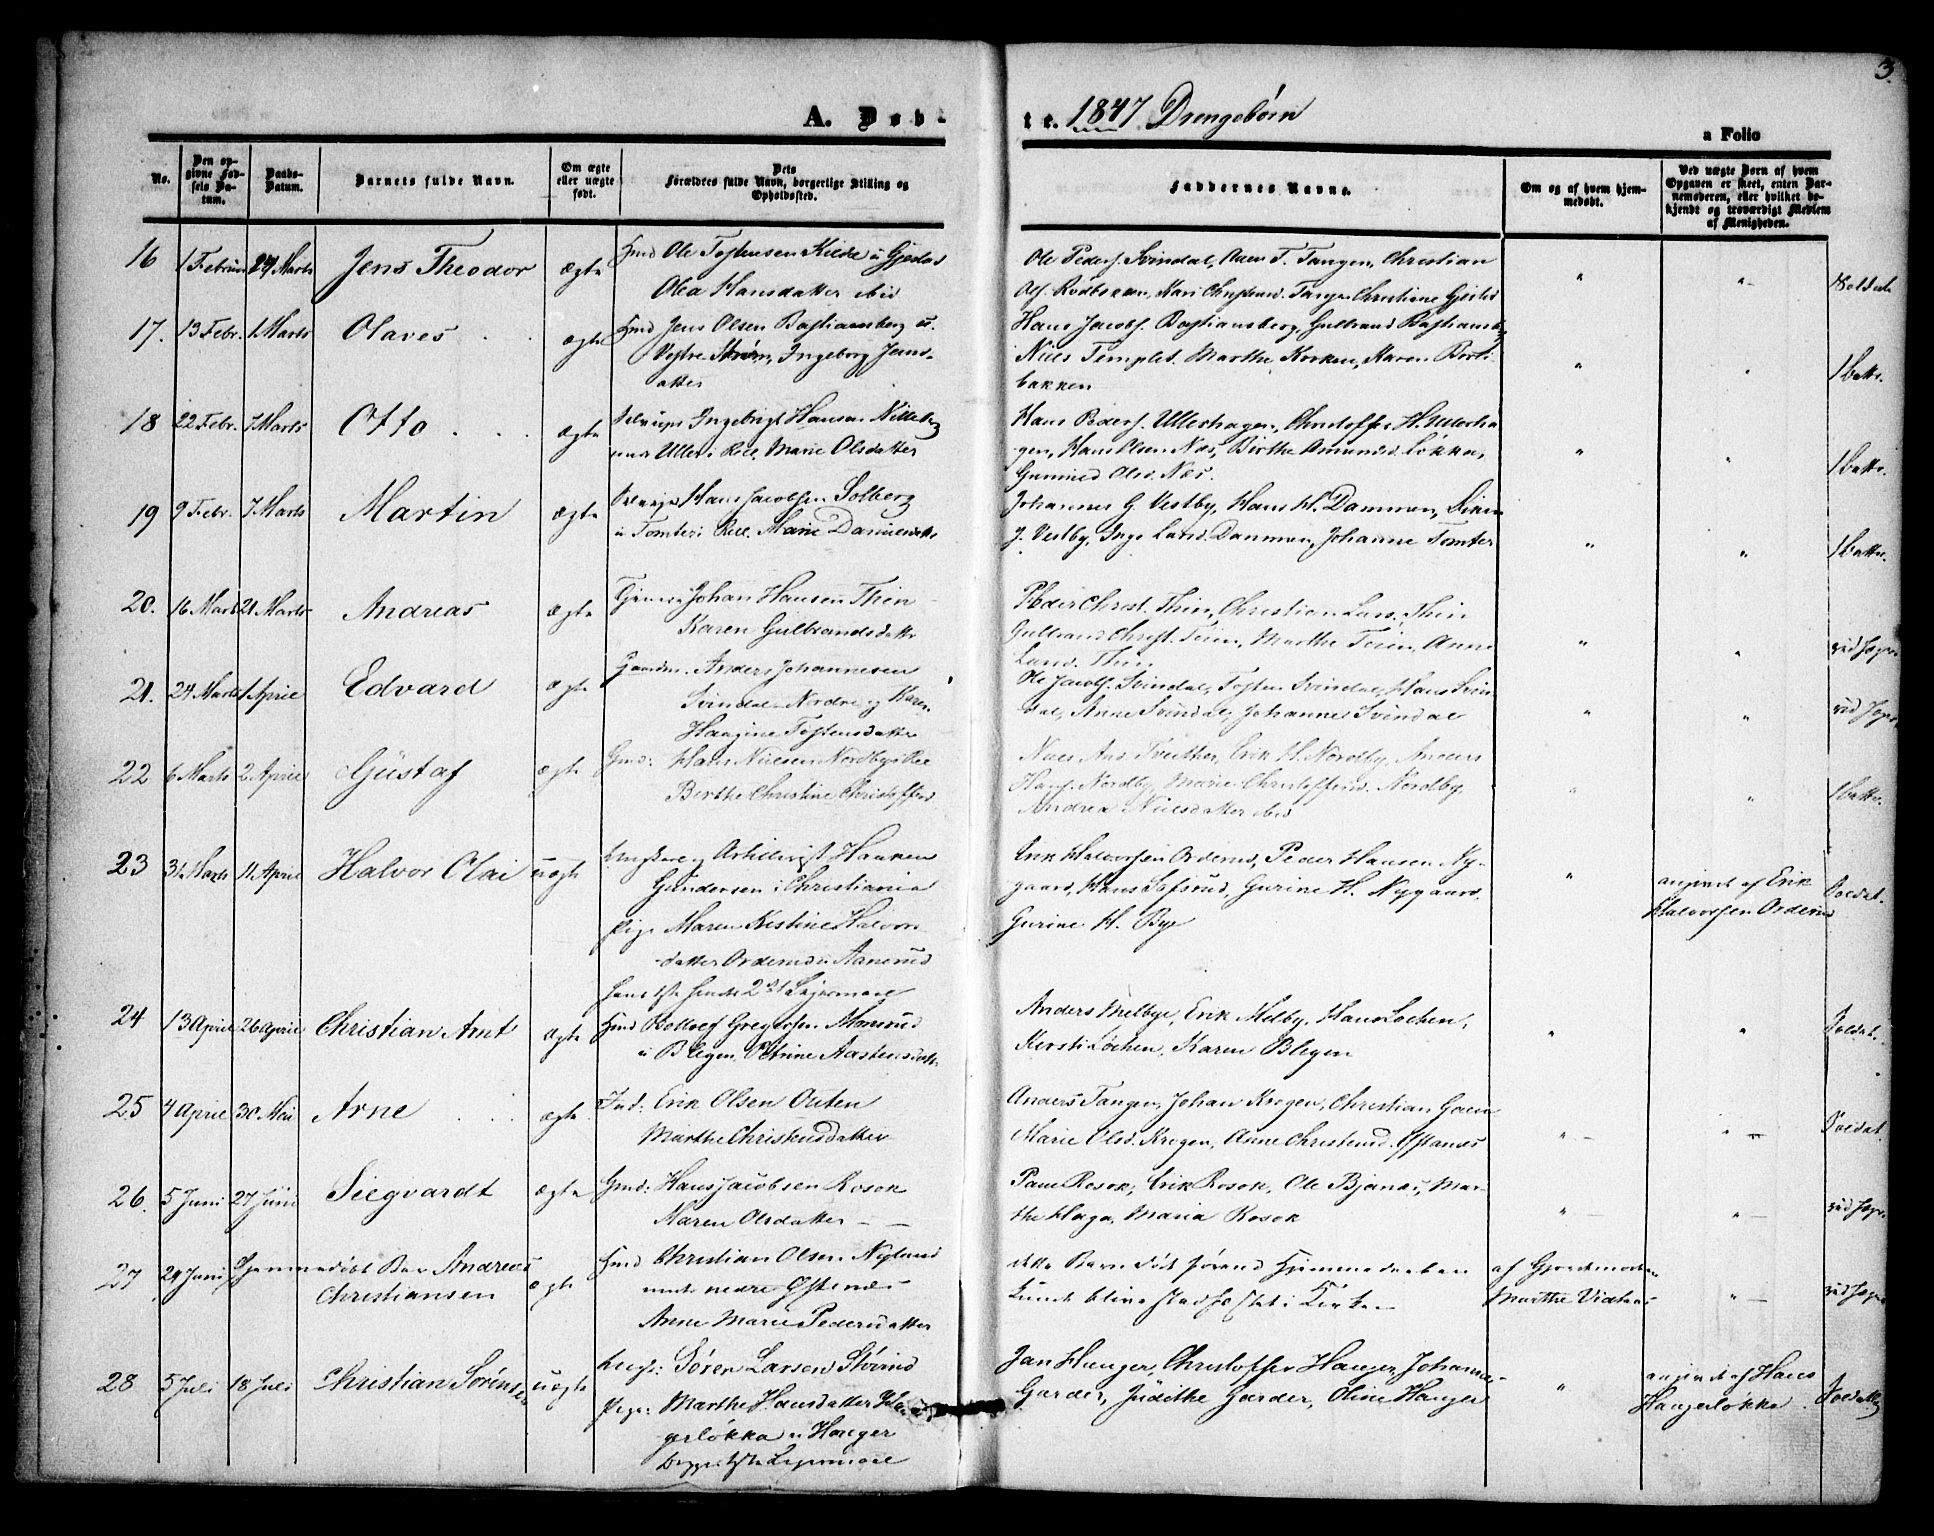 3.
A. Døbte. 1847 Drengebørn
a Folio
No.
Den opgivne Fødsels Datum.
Daabs-Datum.
Barnets fulde Navn.
Om ægte eller uægte født.
Dets Forældres fulde Navn, borgerlige Stilling og Opholdssted.
Faddernes Navne.
Om og af hvem hjemmedøbt.
Ved uægte Børn af hvem Opgaven er skeet, enten Barnemoderen, eller hvilket bekjendt og troværdigt Medlem af Menigheden.
16 1 Februar 24 Marts Jens Theodor ægte Hmd Ole Kilde u Gjestad
Olea Hansdatter ibid
Ole Peders. Svindal, T. Tangen, Christian
Kari Tangen Christiane
" "
17. 13 Febr. 1 Marts Olaves ægte Hmd Jens Olsen Bastiansberg u.
Vestre Strøm, Ingeborg Jens-
datter
Hans Jacobs. Bastiansberg, Gulbrand
Marthe Korken, Karen
bakken
" " 1 batt.
18 22 Febr. 7 Marts Otto ægte Ingebrigt Hansen
Marie Olsdatter
Hans Peders. Ullershagen, Christoffer H. Ullersha-
gen, Hans Olsen Næs, Birthe Amunds. Løkka,
Gunnild Olsd. Næs.
" " 1 batt.
19 9 Febr. 7 Marts Martin ægte Hans Jacobsen Solberg
u Tomter i Marie
Johannes G. Vestby, Hans H. Dammen,
J. Vestby, Inge Larsd. Dammen, Johanne Tomter
" " 1 batt.
20. 16 Marts 21 Marts Andreas ægte Johan Hansen Thin
Karen Gulbrandsdatter
Peder Christ. Thin, Christian Lars. Thin
Gulbrand Christ. Teien, Marthe Teien, Anne
Larsd. Thin
" "
21. 24 Marts 1 April Edvard ægte Gaardm. Anders Johannesen
Svindal Nordre og Karen
Haagine Tostensdatter
Ole Jacobs. Svindal, Tosten Svindal, Hans Svin-
dal, Anne Svindal, Johannes Svindal
" "
22 6 Marts 2 April Gustaf ægte Gmd: Hans Nilsen Nordby
Berthe Christine Christoffersd.
Erik H. Nordby, Anders
Hans. Nordby, Marie Christoffersd. Nordby,
Andrea Nilsdatter ibid
" " 1 batt.
23 31 Marts 11 April Halvor Olai uægte Ungkarl og Artillerist Haaken
Gundersen i Christiania
Pige Maren Kestine Halvors-
datter Orderud u Aanerud
hans 1ste hendes 2det Leiermaal
Erik Halvorsen Orderud, Peder Hansen Ny-
gaard, Hans Gurine H. Nygaard
Gurine H. Bye
" angivet af Erik
Halvorsen Orderud
Soldat.
24 13 April 26 April Christian Arnt ægte Hmd Gregersen
u Blegen,
Anders Melbye, Erik Melby, Hans Lochen,
Kersti Løchen, Karen Blegen
" " Soldat.
25 4 April 30 Mai Arne ægte Ind: Erik Olsen Outen
Marthe Christensdatter
Anders Tangen, Johan Krogen, Christian
Marie Olsd. Krogen, Anne Christensd. Østanes
" - " - Soldat.
26. 5 Juni 27 Juni Siegvardt ægte Gmd: Hans Jacobsen Rosok
Karen Olsdatter - -
Paul Rosok, Erik Rosok, Ole Bjanes, Mar-
the Haga, Maria Rosok
" - " -
27 24 Juni Hjemmedøbt Barn Andreas
Christiansen ægte Hmd Christian Olsen Nylund
under nedre Østenæs
Anne Marie Pedersdatter
dette Barn døde førend Hjemmedaaben
kunde blive stadfæstet i Kirken
af Gjordmoder
Marthe
" -
28 5 Juli 18 Juli Christian Sørensen uægte Ungk: Søren Larsen
Pige: Marthe Hansdatter Han-
gerløkka u Hanger
begges 1ste Leiermaal
Jan Hanger, Christoffer Hanger, Johannes
Garder, Judithe Garder, Oline Hanger
" angivet af Hans
Hangerløkka